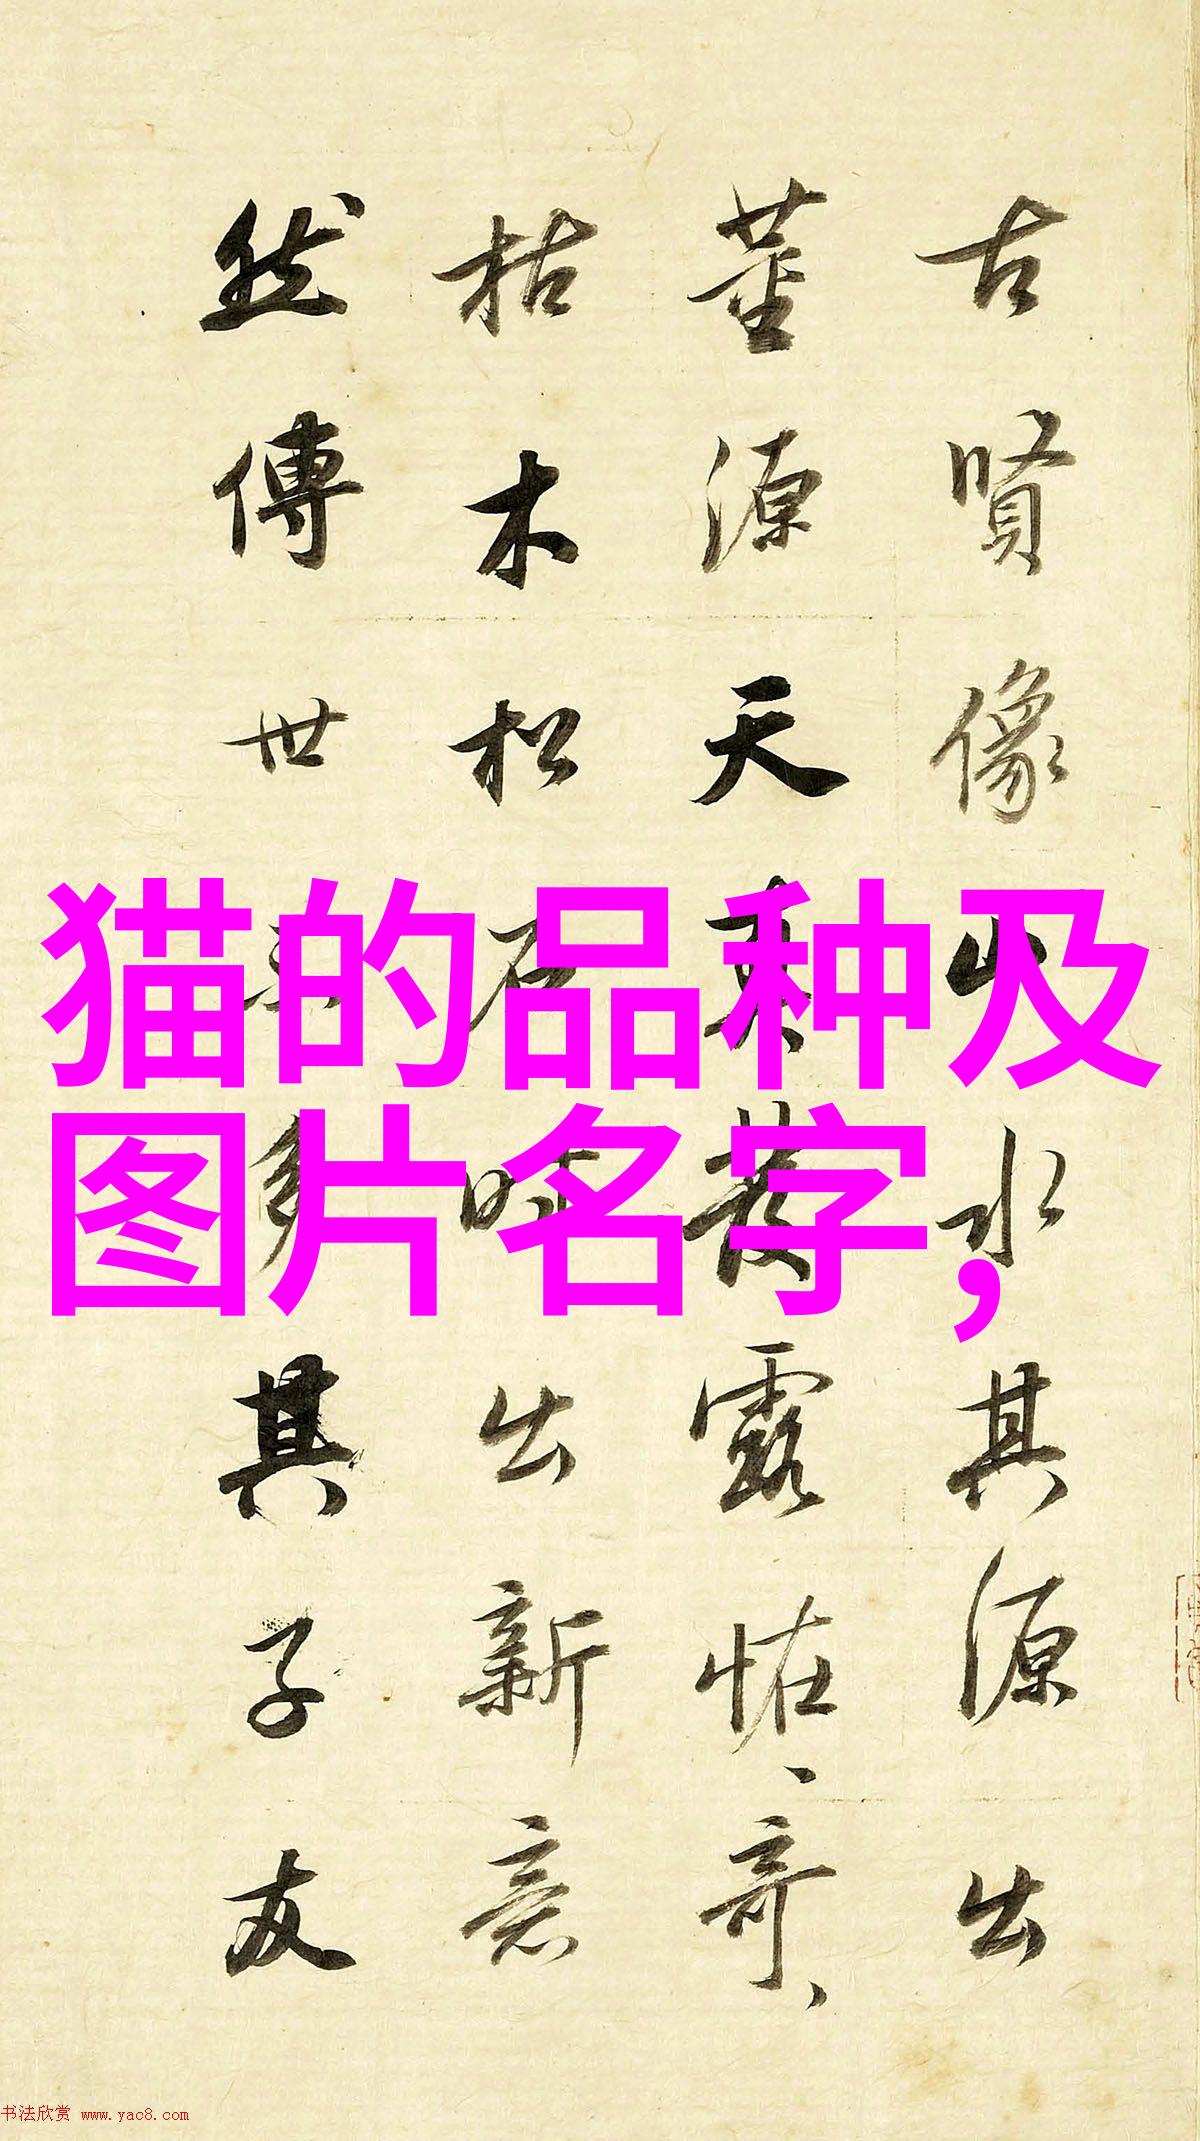 古賢像山水其源出
董源天真發露恠、奇、
枯木松石時出新意
然傳世多其子友
猫的品种及
图片名字,
书法欣赏 www.yac8.com